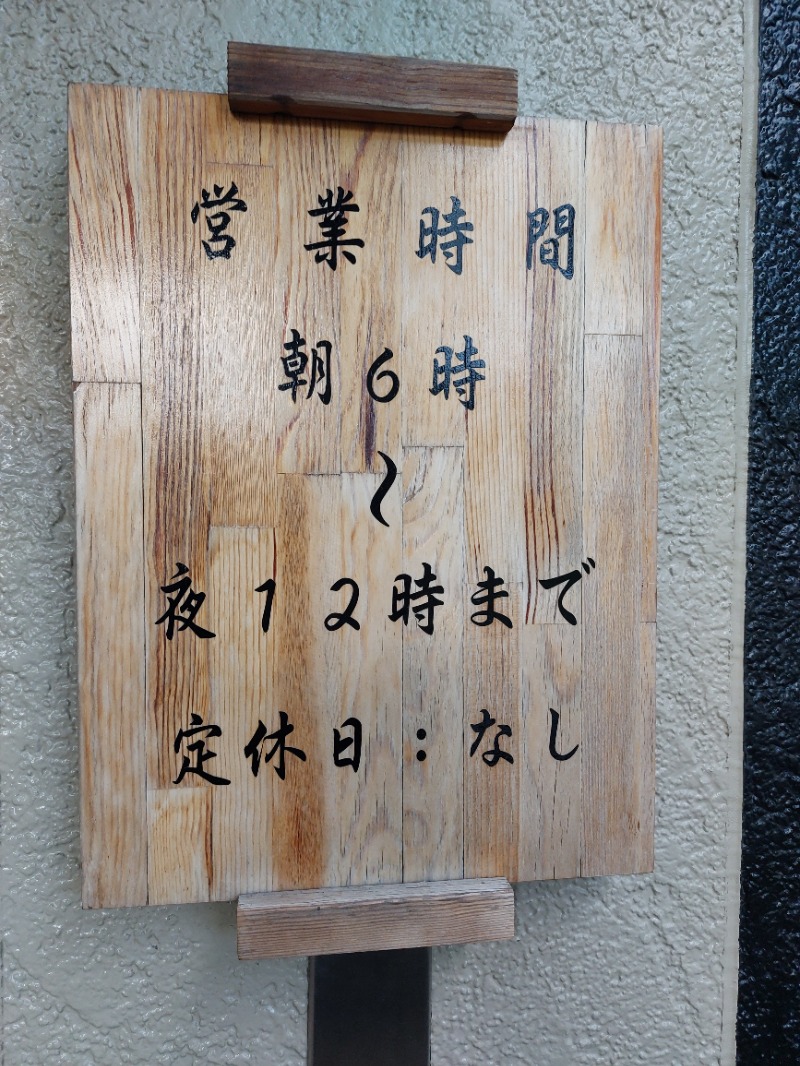 営業時間
朝6時
〜
夜12時まで
定休日：なし